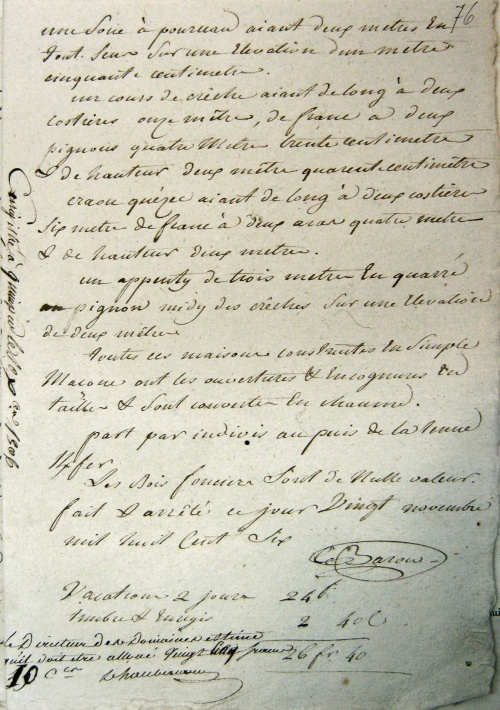 76
une Soue à pourceau aiant deux metres En
tout Sens Sur une Elevation d'un metre
cinquante centimetre.
un cours de crêche aiant de long à deux
costières onze mêtre, de franc a deux
pignons quatre Metre trente centimetre
& de hauteur deux mêtre quarente centimêtre
craou quêzec aiant de long à deux costière
Six metre de franc à deux quatre metre
& de hauteur deux metre.
un appenty de trois metre En quarré
au pignon midy des crêches Sur une Elevation
de deux mêtre
toutes ces maisons construites En Simple
Macone ont les ouvertures & Encognures En
taille & Sont couverte En chaume.
part par indivis au puis de la tenue
Les Bois fonciers Sont de Nulle valeur.
fait & arrêté ce jour Vingt novembre
mil huit Cent Six
Le Baron
Vacations 2 jours 24 f
timbre & Enregis 2 40 C
26 fr 40
le Directeur des Domaines estime
qu'il doit être alloué Vingt francs
10